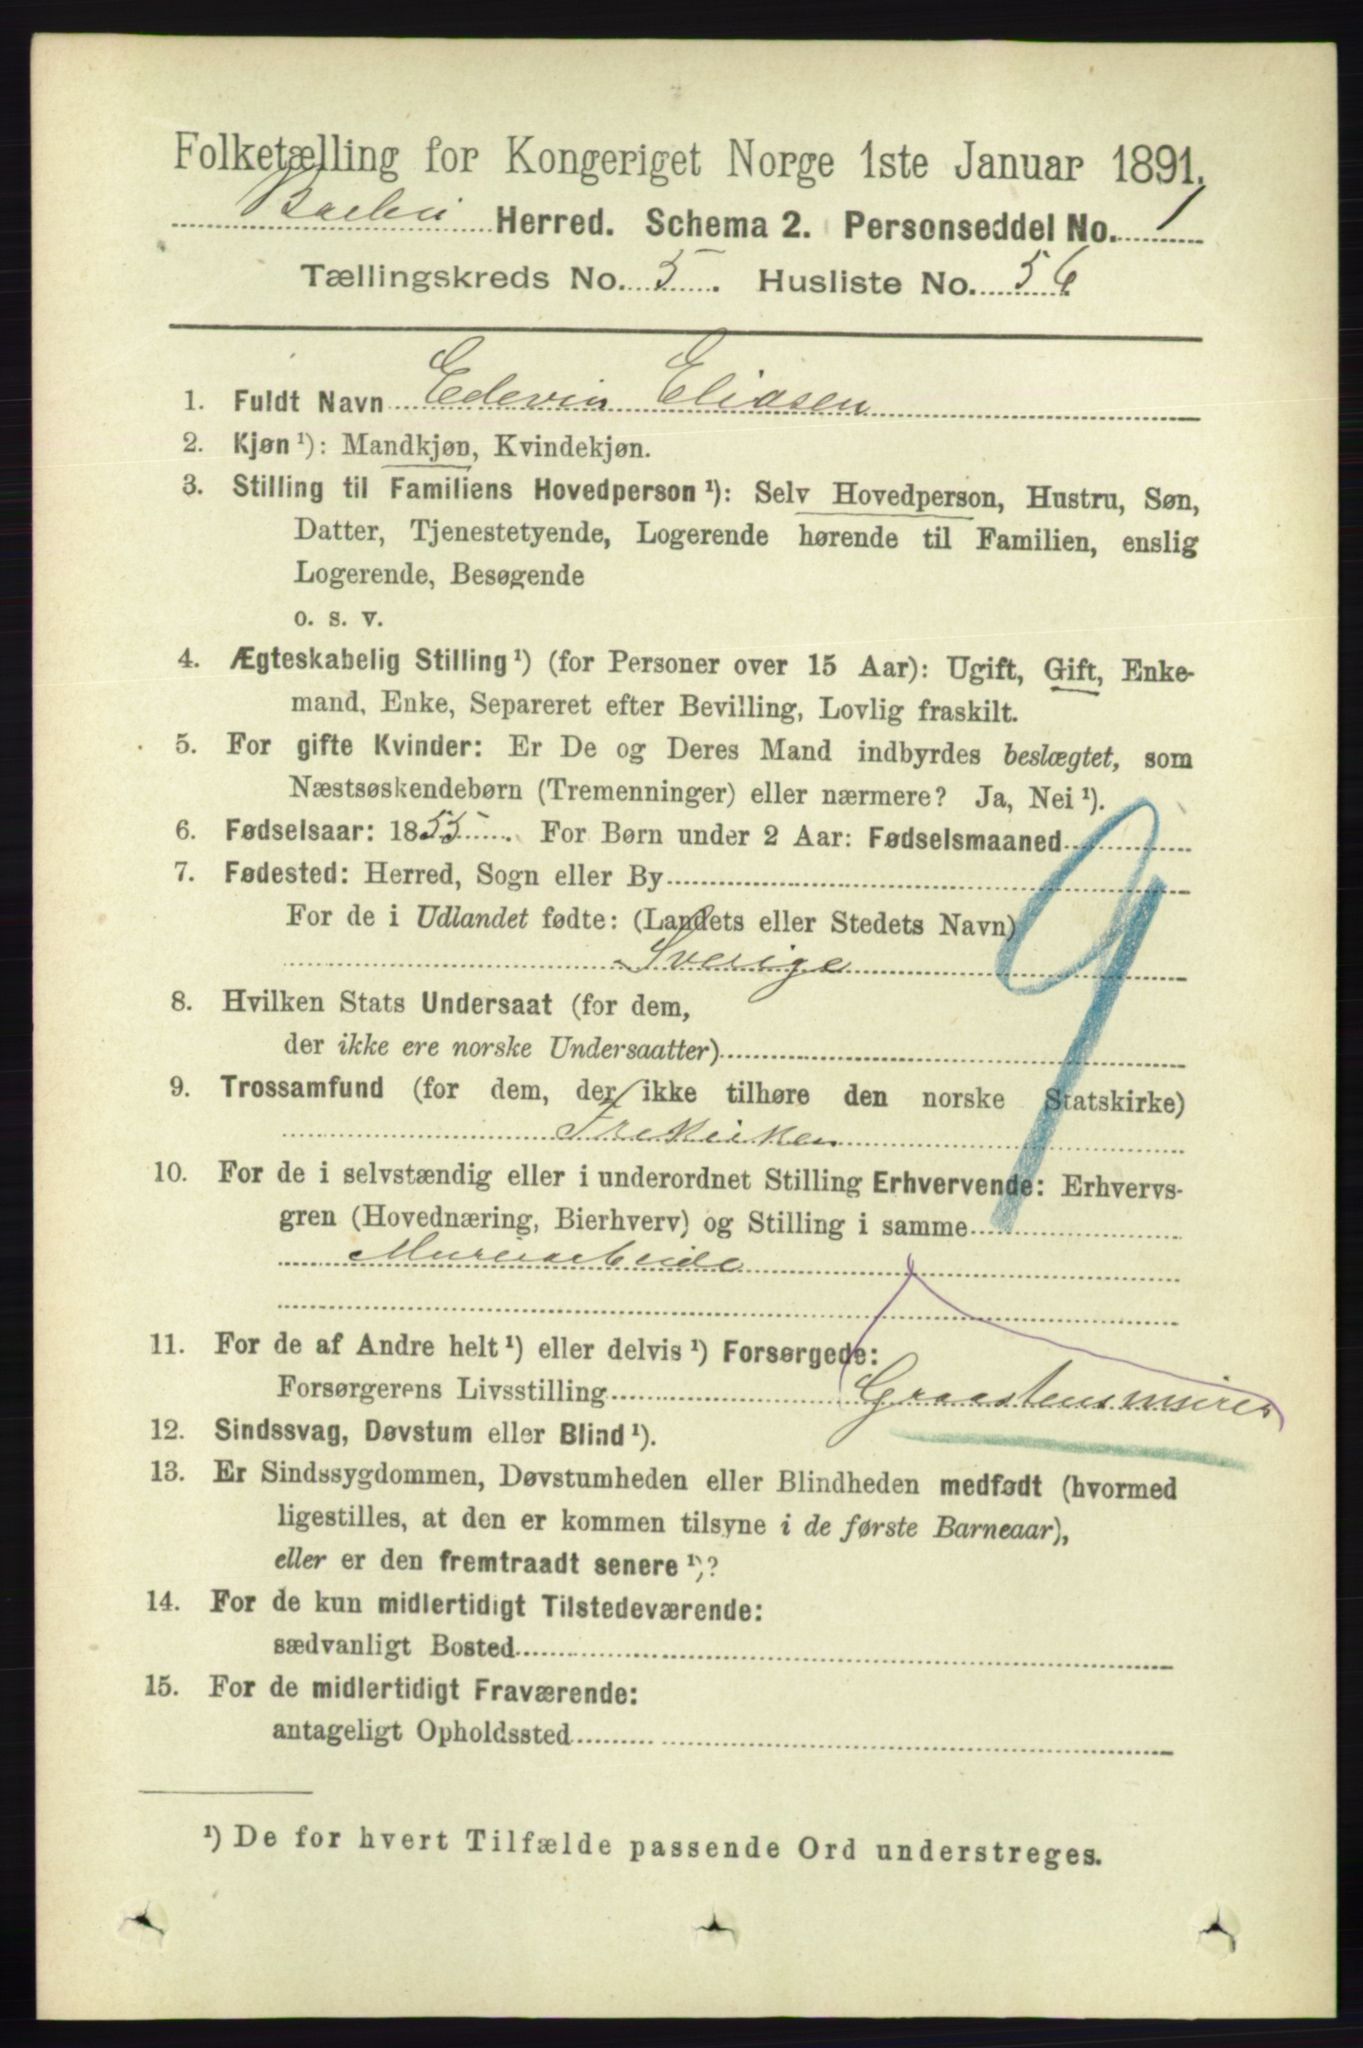 Folketælling for Kongeriget Norge 1ste Januar 1891.
Barbu Herred. Schema 2. Personseddel No. 1
Tællingskreds No. 5. Husliste No. 56
1. Fuldt Navn Edevin Eliasen
2. Kjøn¹): Mandkjøn, Kvindekjøn.
3. Stilling til Familiens Hovedperson¹): Selv Hovedperson, Hustru, Søn,
Datter, Tjenestetyende, Logerende hørende til Familien, enslig
Logerende, Besøgende
o. s. v.
4. Ægteskabelig Stilling¹) (for Personer over 15 Aar): Ugift, Gift, Enke-
mand, Enke, Separeret efter Bevilling, Lovlig fraskilt.
5. For gifte Kvinder: Er De og Deres Mand indbyrdes beslægtet, som
Næstsøskendebørn (Tremenninger) eller nærmere? Ja, Nei¹).
6. Fødselsaar: 1855. For Børn under 2 Aar: Fødselsmaaned
7. Fødested: Herred, Sogn eller By
For de i Udlandet fødte: (Landets eller Stedets Navn)
Sverige
9
8. Hvilken Stats Undersaat (for dem,
der ikke ere norske Undersaatter)
9. Trossamfund (for dem, der ikke tilhøre den norske Statskirke)
Frekirken
10. For de i selvstændig eller i underordnet Stilling Erhvervende: Erhvervs-
gren (Hovednæring, Bierhverv) og Stilling i samme
Murerarbeide
11. For de af Andre helt¹) eller delvis¹) Forsørgede:
Forsørgerens Livsstilling Graastensmurer
12. Sindssvag, Døvstum eller Blind¹).
13. Er Sindssygdommen, Døvstumheden eller Blindheden medfødt (hvormed
ligestilles, at den er kommen tilsyne i de første Barneaar),
eller er den fremtraadt senere¹)?
14. For de kun midlertidigt Tilstedeværende:
sædvanligt Bosted
15. For de midlertidigt Fraværende:
antageligt Opholdssted
¹) De for hvert Tilfælde passende Ord understreges.